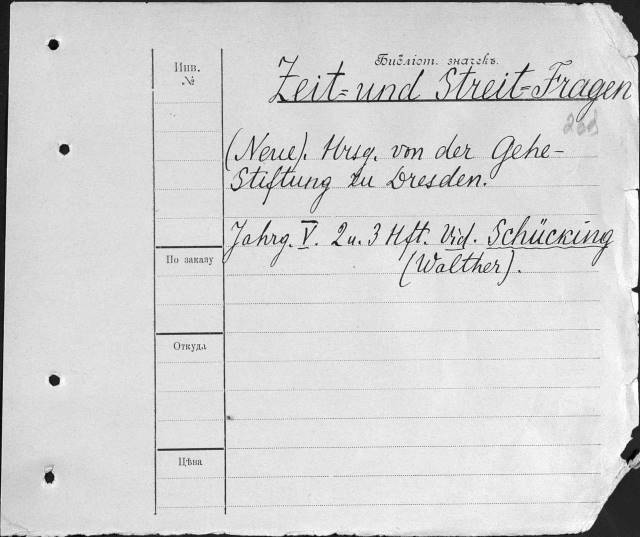 Библіот. значекъ.
Инв.
№
Zeit= und Streit=Fragen
(Neue). Hrsg. von der Gehe-
Stiftung zu Dresden.
Jahrg. V. 2 u. 3 Hft. Vid. Schücking
(Walther).
По заказу
Откуда
Цѣна